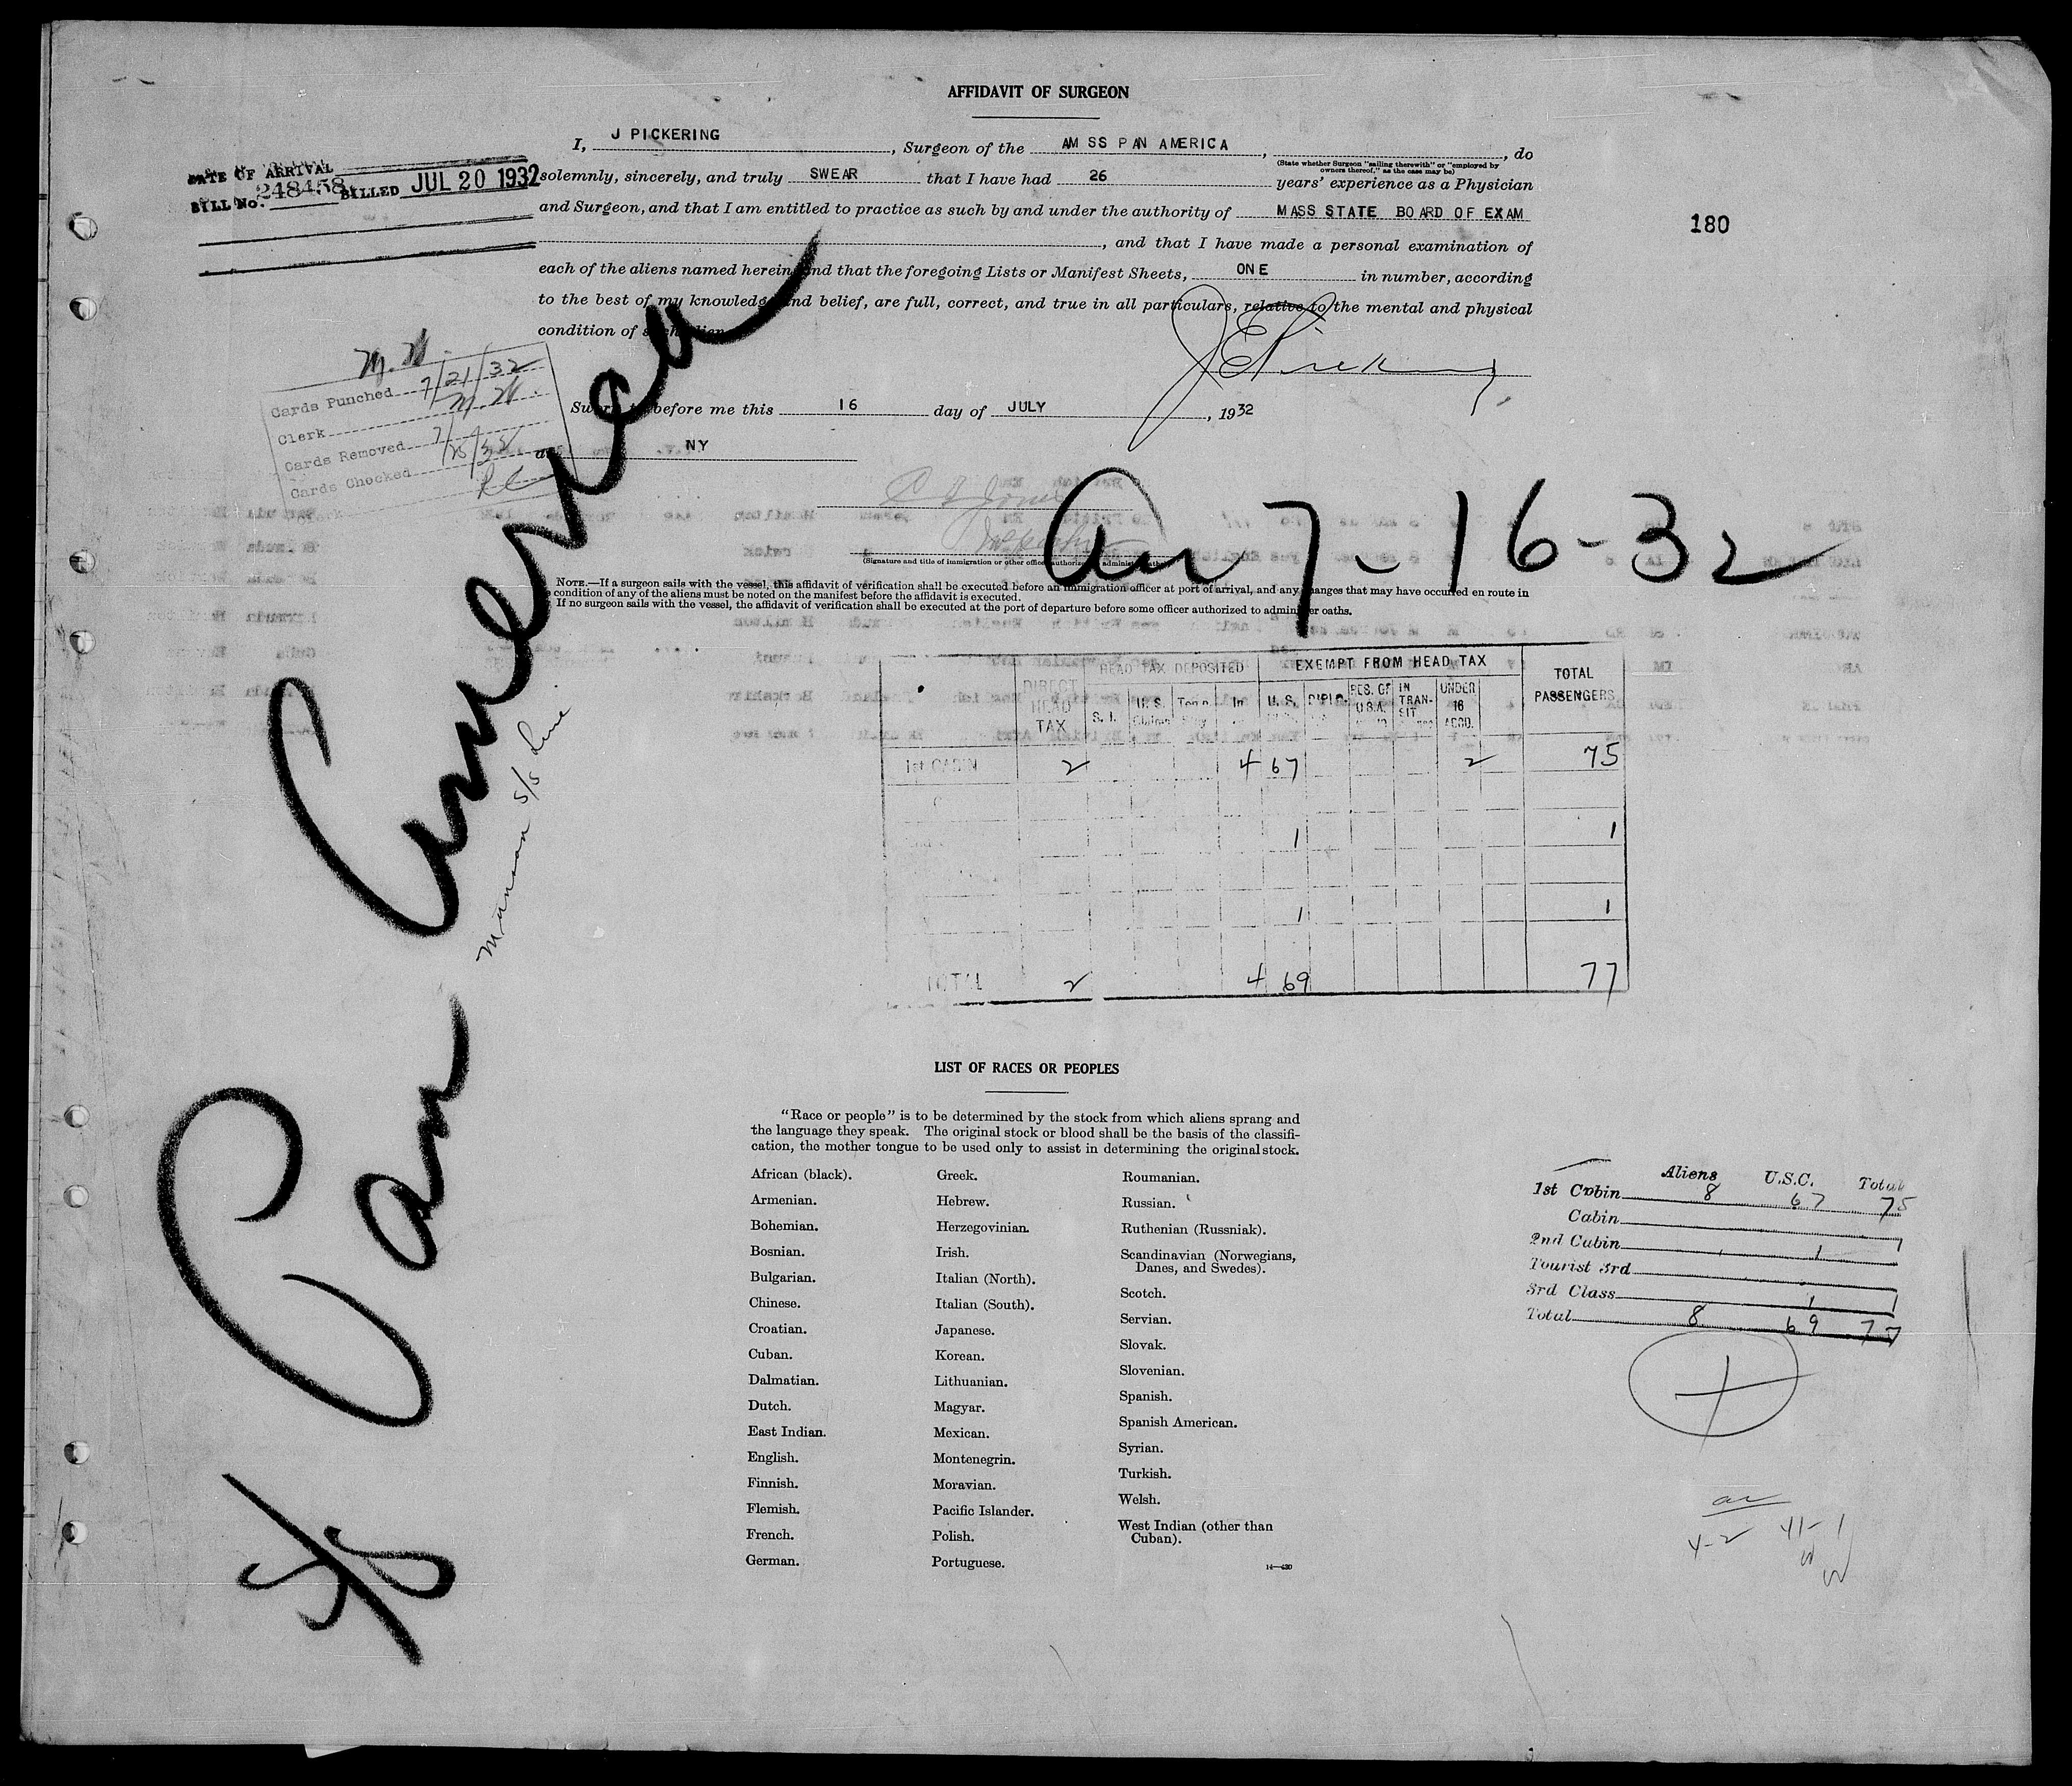 AFFIDAVIT OF SURGEON
I, J PICKERING, Surgeon of the AM SS PAN AMERICA, , do
(State whether Surgeon "sailing therewith" or "employed by
owners thereof," as the case may be)
DATE OF ARRIVAL
BILL No. 248458 BILLED JUL 20 1932
solemnly, sincerely, and truly SWEAR that I have had 26 years' experience as a Physician
and Surgeon, and that I am entitled to practice as such by and under the authority of MASS STATE BOARD OF EXAM
180
, and that I have made a personal examination of
each of the aliens named herein and that the foregoing Lists or Manifest Sheets, ONE in number, according
to the best of my knowledge and belief, are full, correct, and true in all particulars, relative to the mental and physical
condition of such alien
J E Pickering
M. H.
Cards Punched 7/21/32
Clerk M. H.
Cards Removed 7/25/32
Cards Checked
Sworn to before me this 16 day of JULY, 1932
at NY
Arr 7-16-32
(Signature and title of immigration or other officer authorized to administer oaths)
NOTE.—If a surgeon sails with the vessel, this affidavit of verification shall be executed before an immigration officer at port of arrival, and any changes that may have occurred en route in
condition of any of the aliens must be noted on the manifest before the affidavit is executed.
If no surgeon sails with the vessel, the affidavit of verification shall be executed at the port of departure before some officer authorized to administer oaths.
S/S Pan America
Munson S/S Line
HEAD TAX DEPOSITED EXEMPT FROM HEAD TAX TOTAL PASSENGERS
DIRECT HEAD TAX S. I. U. S. In U. S. DIPLO. RES. OF U.S.A. IN TRANSIT UNDER 16 ACCO.
1st CABIN 2 4 67 2 75
1 1
1 1
TOTAL 2 4 69 77
LIST OF RACES OR PEOPLES
"Race or people" is to be determined by the stock from which aliens sprang and
the language they speak. The original stock or blood shall be the basis of the classifi-
cation, the mother tongue to be used only to assist in determining the original stock.
African (black).
Armenian.
Bohemian.
Bosnian.
Bulgarian.
Chinese.
Croatian.
Cuban.
Dalmatian.
Dutch.
East Indian.
English.
Finnish.
Flemish.
French.
German.
Greek.
Hebrew.
Herzegovinian.
Irish.
Italian (North).
Italian (South).
Japanese.
Korean.
Lithuanian.
Magyar.
Mexican.
Montenegrin.
Moravian.
Pacific Islander.
Polish.
Portuguese.
Roumanian.
Russian.
Ruthenian (Russniak).
Scandinavian (Norwegians,
Danes, and Swedes).
Scotch.
Servian.
Slovak.
Slovenian.
Spanish.
Spanish American.
Syrian.
Turkish.
Welsh.
West Indian (other than
Cuban).
14—430
Aliens U.S.C. Total
1st Cabin 8 67 75
Cabin
2nd Cabin 1 1
Tourist 3rd
3rd Class 1 1
Total 8 69 77